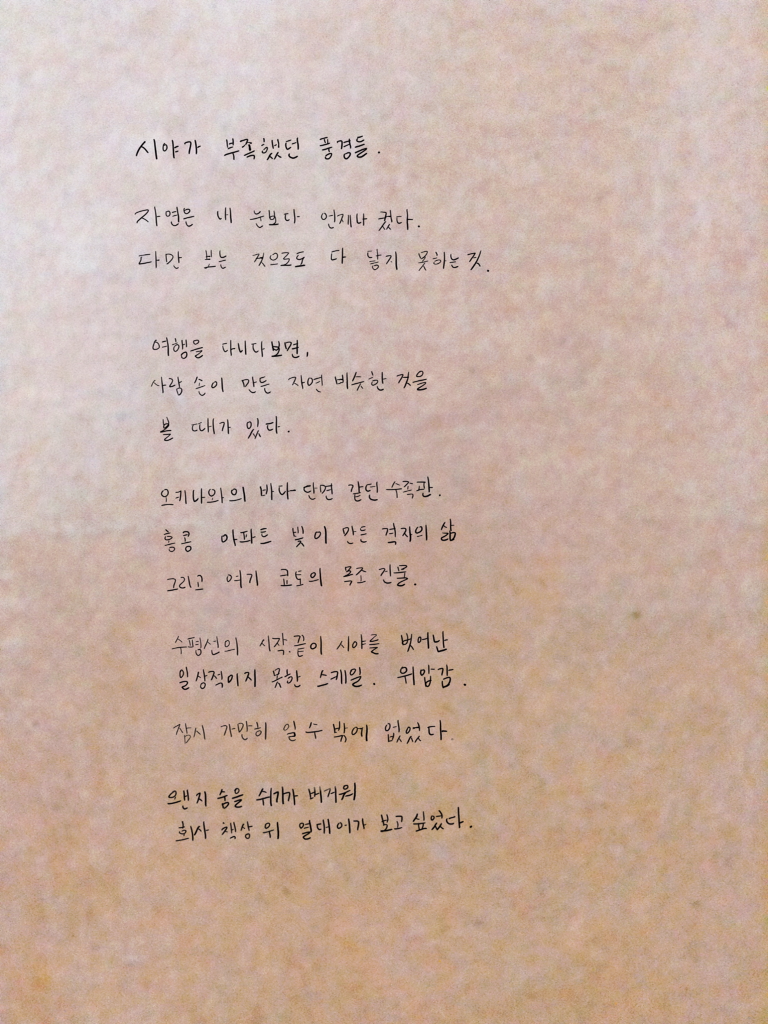 시야가 부족했던 풍경들.
자연은 내 눈보다 언제나 컸다.
다만 보는 것으로도 다 닿기 못하는 것.
여행을 다니다보면,
사람 손이 만든 자연 비슷한 것을
볼 때가 있다.
오키나와의 바다 단면 같던 수족관.
홍콩 아파트 빛이 만든 격자의 삶
그리고 여기 쿄토의 목조 건물.
수평선의 시작.끝이 시야를 벗어난
일상적이지 못한 스케일. 위압감.
잠시 가만히 일 수 밖에 없었다.
왠지 숨을 쉬기가 버거워
회사 책상 위 열대어가 보고 싶었다.